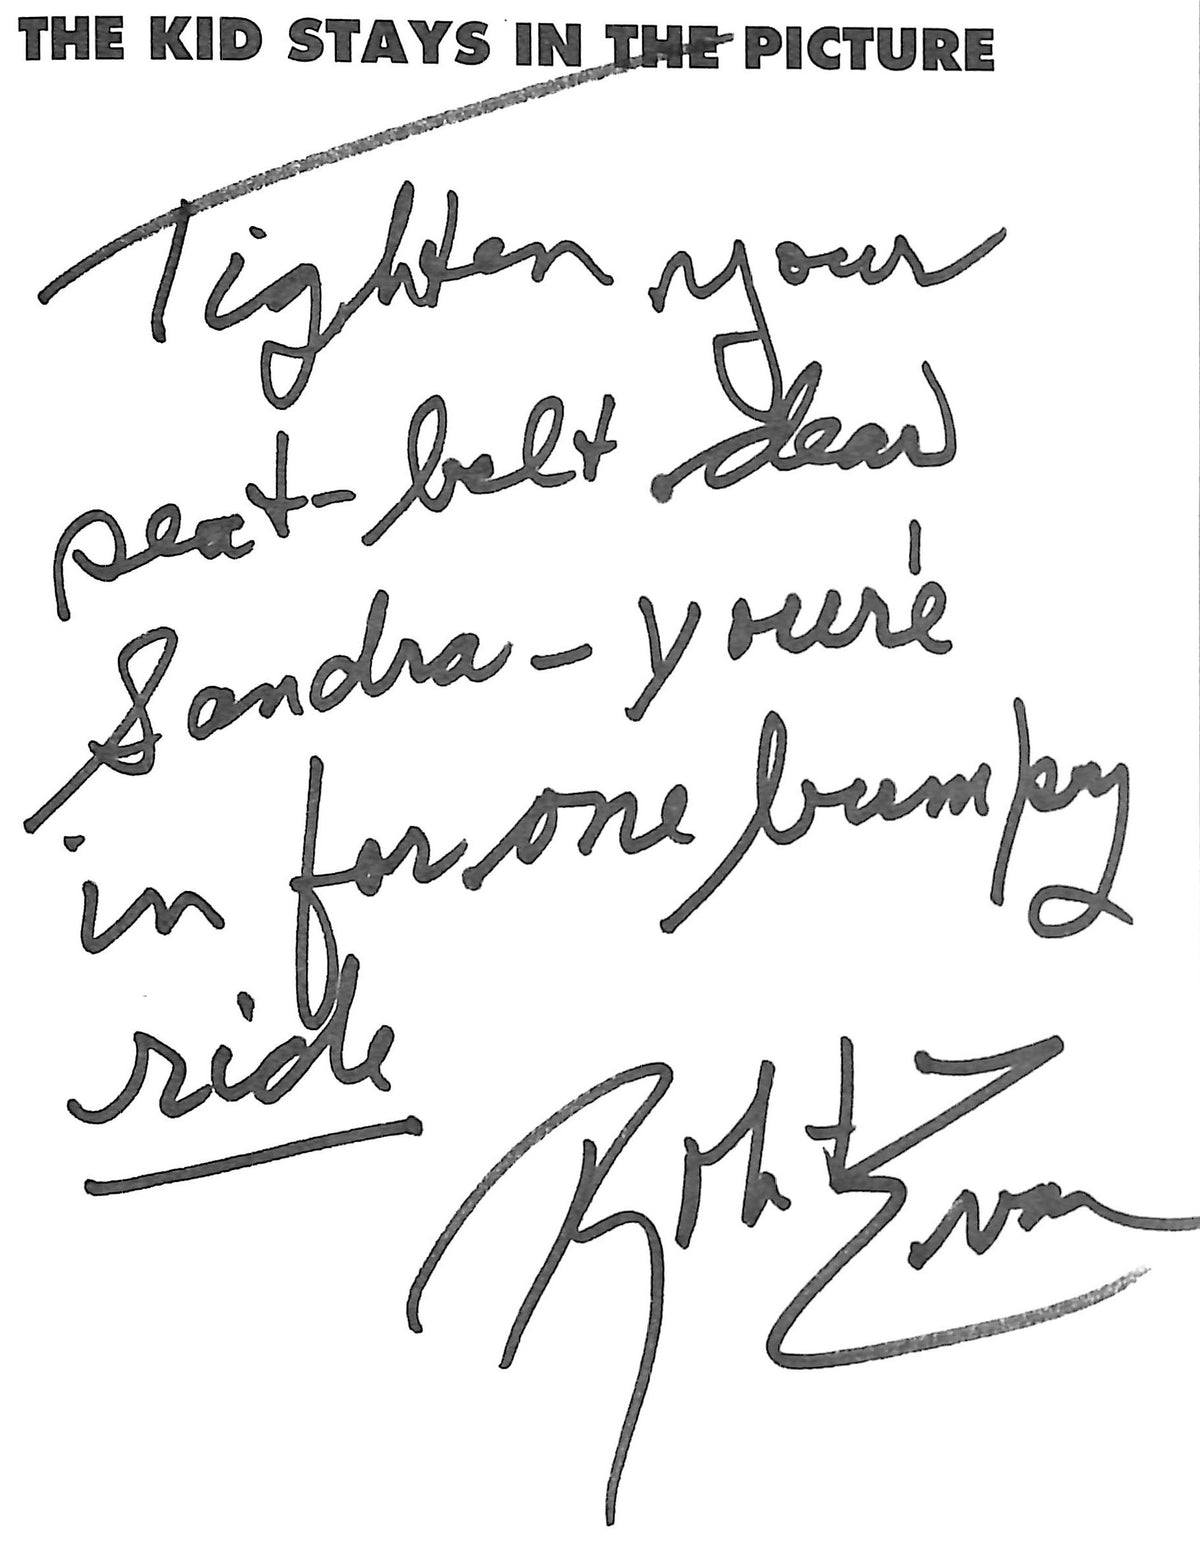 THE KID STAYS IN THE PICTURE
Tighten your
seat-belt dear
Sandra - you're
in for one bumpy
ride
Robt Evans